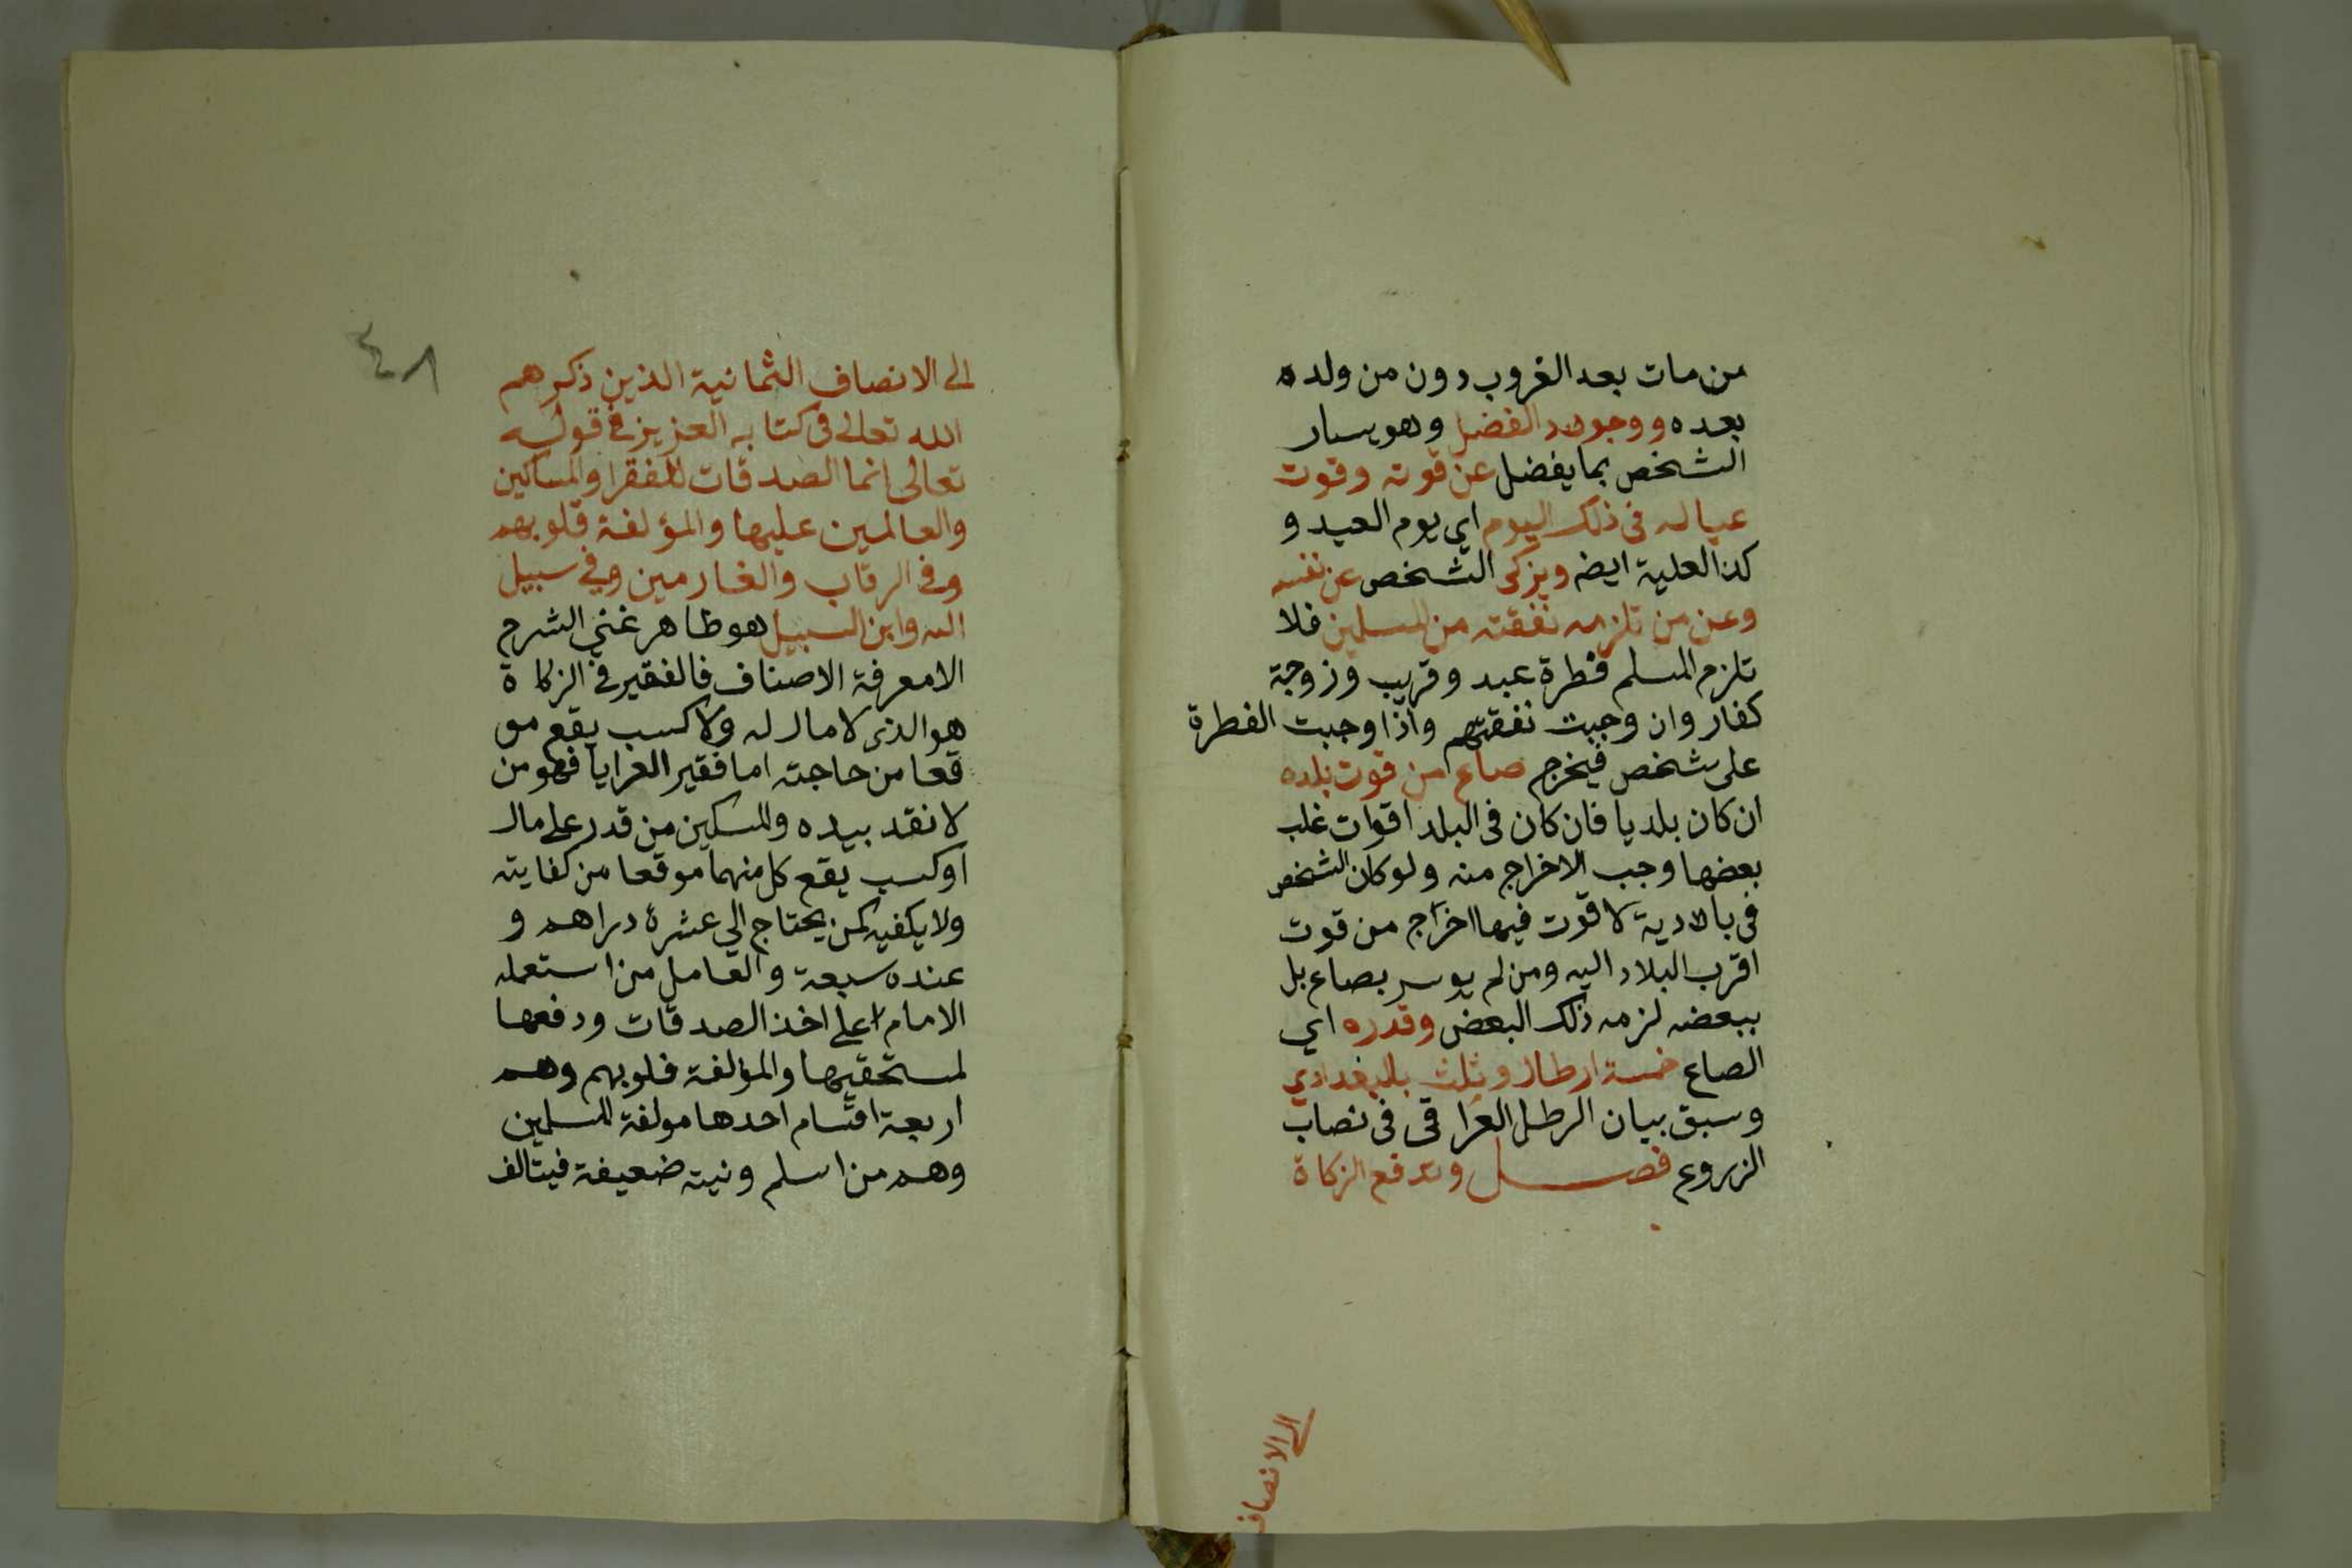 من مات بعد الغروب دون من ولده
بعده ووجود الفضل وهو يسار
الشخص بما يفضل عن قوته وقوت
عياله فى ذلك اليوم اي يوم العيد و
كذا لعلية ايضه ويزكى الشخص عن نفسه
وعن من تلزمه نفقته من المسلمين فلا
تلزم المسلم فطرة عبد وقريب وزوجة
كفار وان وجبت نفقتهم واذا وجبت الفطرة
على شخص فيخرج صاع من قوت بلده
ان كان بلديا فان كان فى البلد اقوات غلب
بعضها وجب الاخراج منه ولو كان الشخص
فى بالادية لا قوت فيها اخراج من قوت
اقرب البلاد اليه ومن لم يوسر بصاع بل
ببعضه لزمه ذلك البعض وقدره اي
الصاع خمسة ارطال وثلث بالبغدادي
وسبق بيان الرطل العراقى فى نصاب
الزروع فصل وتدفع الزكاة
الى الانصاف
٤٨
الى الانصاف الثمانية الذين ذكرهم
الله تعالى فى كتابه العزيز فى قوله
تعالى انما الصدقات للفقرا والمساكين
والعالمين عليها والمؤلفة قلوبهم
وفى الرقاب والغارمين وفي سبيل
الله وابن السبيل هو ظاهر غني الشرح
الامعرفة الاصناف فالفقير فى الزكاة
هو الذى لا مال له ولا كسب يقع مو
قعا من حاجته اما فقير العرايا فهو من
لا نقد بيده والمسكين من قدر على مال
او كسب يقع كل منهما موقعا من كفايته
ولا يكفيه كمن يحتاج الي عشرة دراهم و
عنده سبعة والعامل من استعمله
الامام اعلى اخذ الصدقات ودفعها
لمستحقيها والمؤلفة قلوبهم وهم
اربعة اقسام احدها مولفة المسلمين
وهم من اسلم ونيته ضعيفة فيتالف